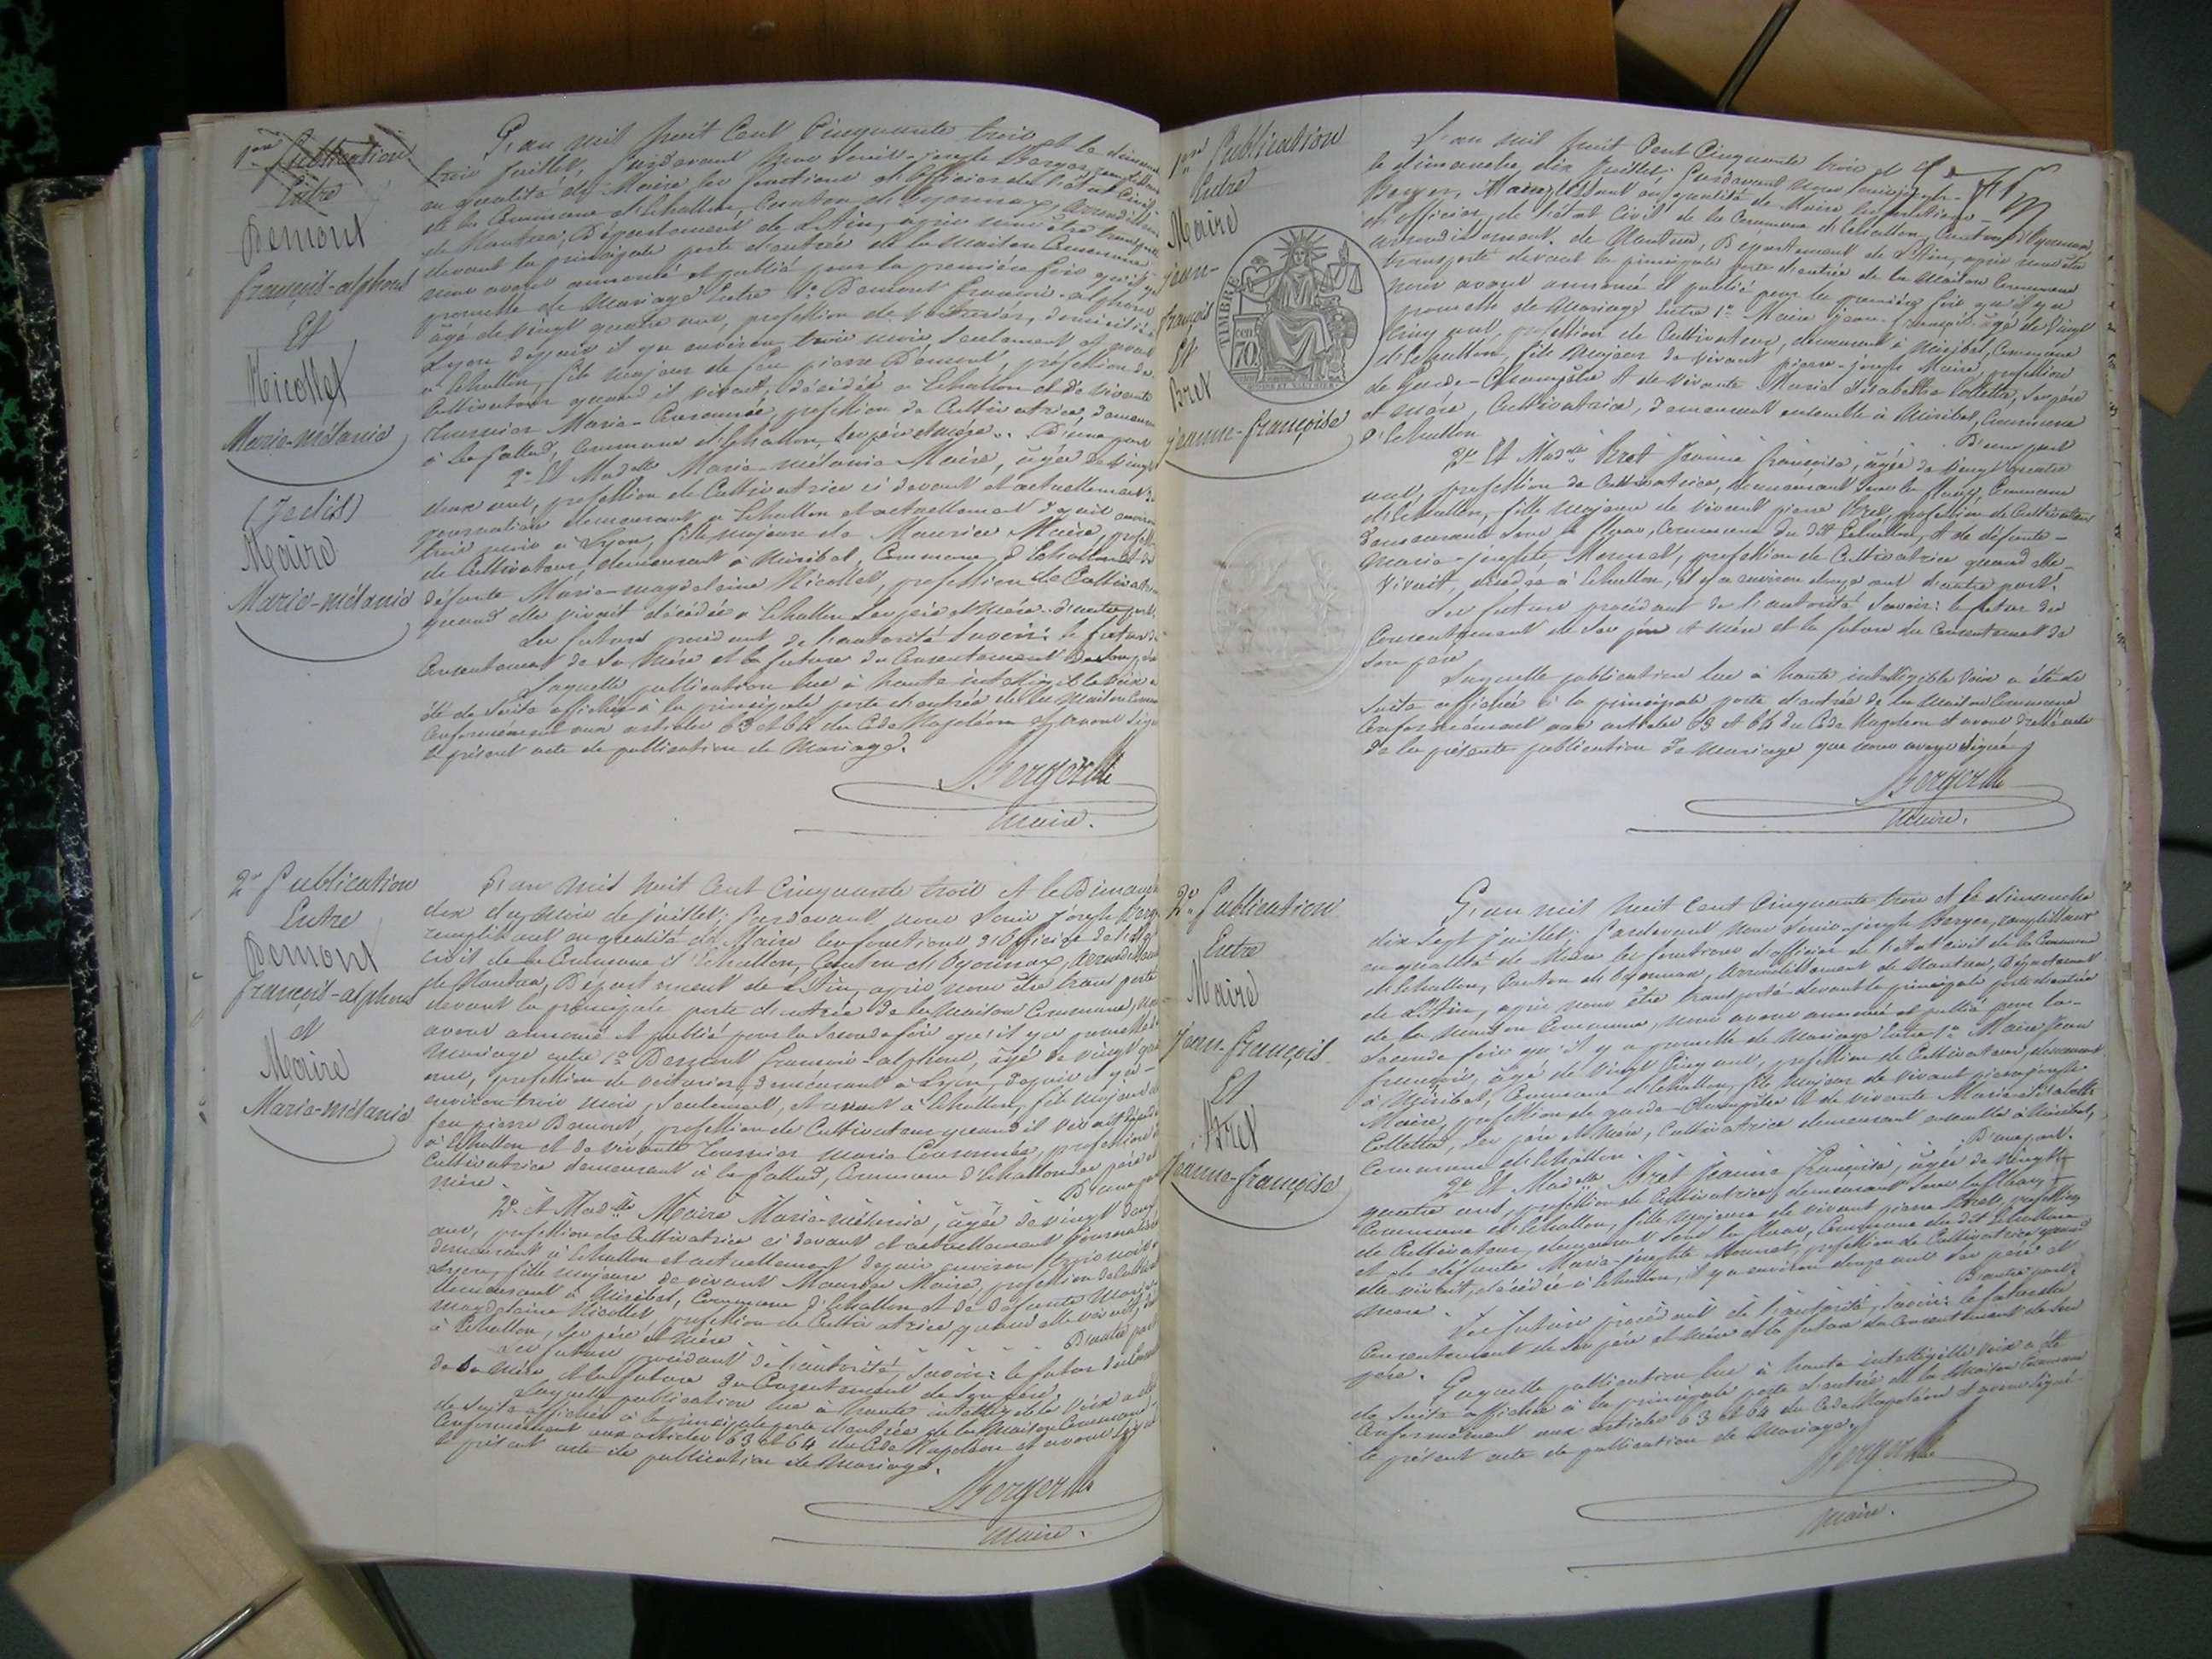 1ère Publication
Entre
Demont
françois-alphons
Et
Nicollet
Marie-mélanie
(Je dis)
Maire
Marie-mélanie
L'an mil huit Cent Cinquante trois et le dimanche
trois juillet, Pardevant Nous Louis-joseph Berger
en qualité de Maire les fonctions d'officier de l'état Civil
de la Commune d'Echallon, Canton d'Oyonnax, arrondissem
de Nantua, Département de l'Ain, après nous être transporté
devant la principale porte d'entrée de la Maison Commune
nous avons annoncé et publié pour la première fois qu'il y a
promesse de Mariage Entre 1° Demont françois-alphons
âgé de vingt quatre ans, profession de Voiturier, domicilié à
Lyon depuis il y a environ trois mois, seulement et avant
à Echallon, fils majeur de feu pierre Demont, profession de
Cultivateur quand il vivait, décédé à Echallon et de vivante
Tournier Marie-Couronnée, profession de Cultivatrice, demeurant
à la fallud, Commune d'Echallon, ses père et mère. D'une part
2° Et Madelle Marie-mélanie Maire, âgée de vingt
deux ans, profession de Cultivatrice ci devant et actuellement
demeurant à Echallon et actuellement depuis environ
trois mois à Lyon, fille majeure de Maurice Maire, profession
de Cultivateur, demeurant à Miribel, Commune d'Echallon et de
défunte Marie-magdeleine Nicollet, profession de Cultivatrice
quand elle vivait décédée à Echallon ses père et mère. d'autre part.
Les futurs procédant de l'autorité savoir: le futur du
Consentement de sa Mère et la future du Consentement de son père
Laquelle publication lue à haute intelligible Voix a
été de suite affichée à la principale porte d'entrée de la Maison Commune
Conformément aux articles 63 et 64 du Code Napoléon et avons signé
le présent acte de publication de Mariage.
Berger
Maire.
2e Publication
Entre
Demont
françois-alphons
et
Maire
Marie-mélanie
L'an mil huit Cent Cinquante trois et le Dimanche
dix du mois de juillet; Pardevant nous Louis joseph Berger
remplissant en qualité de Maire les fonctions d'officier de l'état
Civil de la Commune d'Echallon, Canton d'Oyonnax, arrondissement
de Nantua, Département de l'Ain, après nous être transporté
devant la principale porte d'entrée de la Maison Commune, nous
avons annoncé et publié pour la seconde fois qu'il y a promesse de
Mariage entre 1° Demont françois-alphons, âgé de vingt quatre
ans, profession de voiturier, demeurant à Lyon, depuis il y a
environ trois mois, seulement, et avant à Echallon, fils majeur de
feu pierre Demont, profession de Cultivateur quand il vivait décédé
à Echallon et de vivante Tournier Marie Couronnée, profession de
Cultivatrice demeurant à la fallud, Commune d'Echallon ses père et
mère. D'une part
2° et Madelle Maire Marie-mélanie, âgée de vingt deux
ans, profession de Cultivatrice ci devant et actuellement
demeurant à Echallon et actuellement depuis environ trois mois à
Lyon, fille majeure de vivant Maurice Maire, profession de Cultivateur
demeurant à Miribel, Commune d'Echallon et de défunte Marie
magdelaine Nicollet, profession de Cultivatrice, quand elle vivait,
à Echallon, ses père et mère. D'autre part
Les futurs procédant de l'autorité, savoir: le futur du
de sa mère et la future du Consentement de son père.
Laquelle publication lue à haute intelligible Voix a été
de suite affichée à la principale porte d'entrée de la Maison Commune
Conformément aux articles 63 et 64 du Code Napoléon et avons signé
le présent acte de publication de Mariage.
Berger
Maire.
1ère Publication
Entre
Maire
jean-
françois
Et
Bret
jeanne-françoise
TIMBRE
70 cent
L'an mil huit Cent Cinquante trois et
le dimanche dix juillet; Pardevant Nous Louis joseph
Berger, Maire, en qualité de Maire les fonctions
d'officier de l'état Civil de la Commune d'Echallon, Canton d'Oyonnax,
arrondissement de Nantua, Département de l'Ain, après nous être
transporté devant la principale porte d'entrée de la Maison Commune
nous avons annoncé et publié pour la première fois qu'il y a
promesse de Mariage Entre 1° Maire jean-françois âgé de Vingt
Cinq ans, profession de Cultivateur, demeurant à Miribel, Commune
d'Echallon, fils Majeur de vivant pierre-joseph Maire, profession
de Garde-Champêtre et de vivante Marie Elisabeth Colletta, ses père
et mère, Cultivatrice, demeurant ensemble à Miribel, Commune
d'Echallon D'une part
2° Et Madelle Bret Jeanne françoise, âgée de Vingt quatre
ans, profession de Cultivatrice, demeurant sous le flury, Commune
d'Echallon, fille Majeure de vivant pierre Bret, profession de Cultivateur
demeurant sous le flury, Commune du dit Echallon, et de défunte
Marie-josephte, Monnet, profession de Cultivatrice quand elle
Vivait, décédée à Echallon, il y a environ douze ans d'autre part.
Les futurs procédant de l'autorité savoir: le futur du
Consentement de ses père et mère et la future du Consentement de
son père
Laquelle publication lue à haute intelligible Voix a été de
suite affichée à la principale porte d'entrée de la Maison Commune
Conformément aux articles 63 et 64 du Code Napoléon et avons dressé acte
de la présente publication de Mariage que nous avons signé
Berger
Maire.
2e Publication
Entre
Maire
Jean-françois
Et
Bret
Jeanne-françoise
L'an mil huit cent Cinquante trois et le dimanche
dix sept juillet; Pardevant nous Louis-joseph Berger, remplissant
en qualité de Maire les fonctions d'officier de l'état civil de la Commune
d'Echallon, Canton d'Oyonnax, arrondissement de Nantua, Département
de l'Ain, après nous être transporté devant la principale porte d'entrée
de la Maison Commune, nous avons annoncé et publié pour la
seconde fois qu'il y a promesse de Mariage Entre 1° Maire Jean
françois, âgé de Vingt Cinq ans, profession de Cultivateur, demeurant
à Miribel, Commune d'Echallon, fils Majeur de vivant pierre joseph
Maire, profession de garde-Champêtre et de vivante Marie-Elisabeth
Colletta, ses père et mère, Cultivatrice demeurant ensemble à Miribel,
Commune d'Echallon. D'une part.
2° Et Madelle Bret Jeanne françoise, âgée de vingt
quatre ans, profession de Cultivatrice, demeurant sous le flury
Commune d'Echallon, fille Majeure de vivant pierre Bret, profession
de Cultivateur, demeurant sous le flury, Commune du dit Echallon
et de défunte Marie-josephte Monnet, profession de Cultivatrice quand
elle vivait, décédée à Echallon, il y a environ douze ans ses père et
mère. D'autre part.
Les futurs procédant de l'autorité, savoir: le futur du
Consentement de ses père et Mère et la future du Consentement de son
père.
Laquelle publication lue à haute intelligible voix a été
de suite affichée à la principale porte d'entrée de la Maison Commune
Conformément aux articles 63 et 64 du Code Napoléon et avons signé
le présent acte de publication de Mariage.
Berger
Maire.